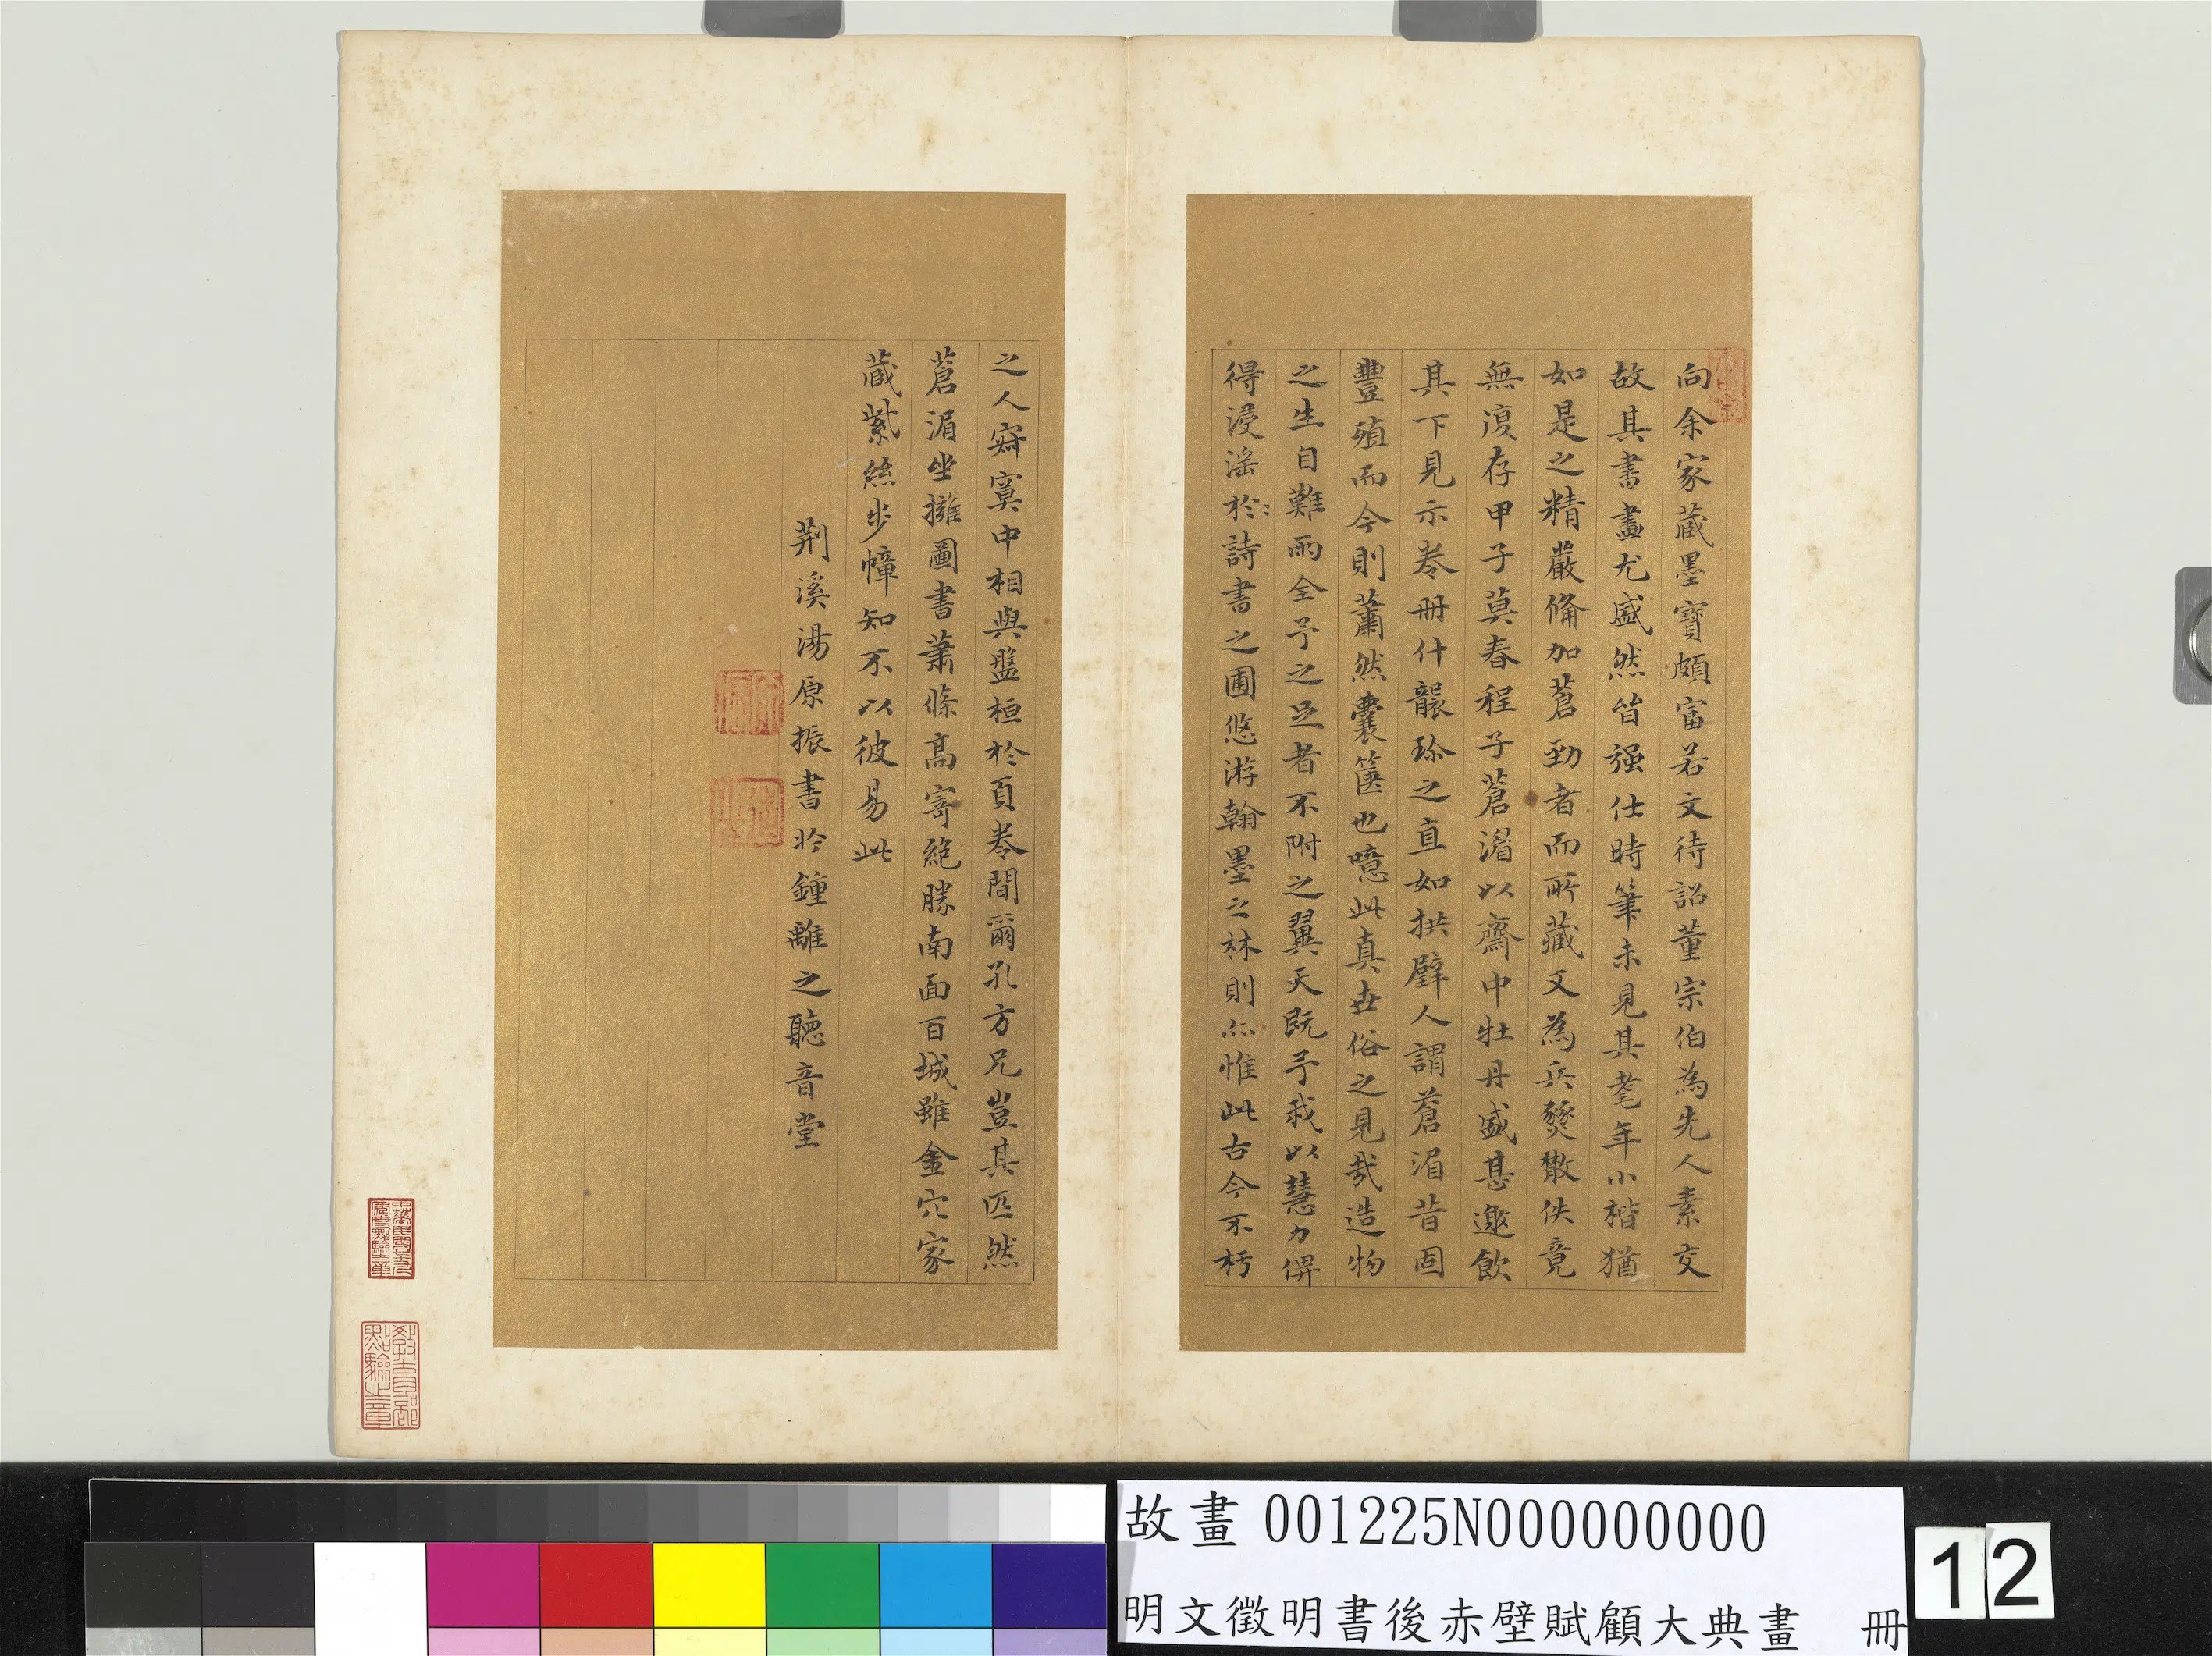 向余家藏墨寶頗富若文待詔董宗伯為先人素交
故其書畫尤盛然皆强仕時筆未見其耄年小楷猶
如是之精嚴俻加蒼勁者而所藏又為兵燹散佚竟
無復存甲子莫春程子蒼湄以齋中牡丹盛甚邀飲
其下見示卷冊什襲珍之直如拱璧人謂蒼湄昔固
豐殖而今則蕭然囊篋也噫此真世俗之見哉造物
之生自難兩全予之足者不附之翼天既予我以慧力俾
得浸滛於詩書之圃悠游翰墨之林則亦惟此古今不朽
之人寂寞中相與盤桓於頁卷間爾孔方兄豈其匹然
蒼湄坐擁圖書蕭條高寄絶勝南面百城雖金穴家
藏紫絲步幛知不以彼易此
荆溪湯原振書於鍾離之聽音堂
教育部
點驗之章
故畫 001225N000000000
明文徵明書後赤壁賦顧大典畫 冊
12